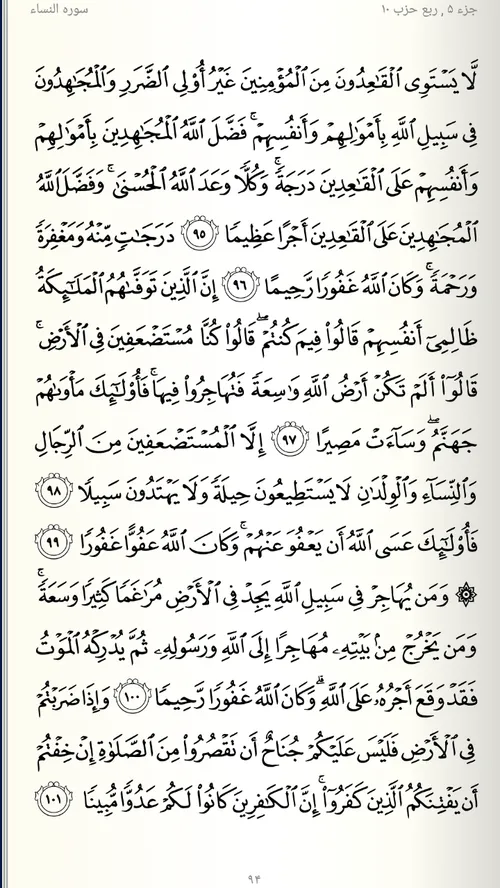 جزء ۵ , ربع حزب ۱۰
سوره النساء
لَّا يَسْتَوِى ٱلْقَـٰعِدُونَ مِنَ ٱلْمُؤْمِنِينَ غَيْرُ أُو۟لِى ٱلضَّرَرِ وَٱلْمُجَـٰهِدُونَ
فِى سَبِيلِ ٱللَّهِ بِأَمْوَٰلِهِمْ وَأَنفُسِهِمْ ۚ فَضَّلَ ٱللَّهُ ٱلْمُجَـٰهِدِينَ بِأَمْوَٰلِهِمْ
وَأَنفُسِهِمْ عَلَى ٱلْقَـٰعِدِينَ دَرَجَةً ۚ وَكُلًّا وَعَدَ ٱللَّهُ ٱلْحُسْنَىٰ ۚ وَفَضَّلَ ٱللَّهُ
ٱلْمُجَـٰهِدِينَ عَلَى ٱلْقَـٰعِدِينَ أَجْرًا عَظِيمًا ٩٥ دَرَجَـٰتٍ مِّنْهُ وَمَغْفِرَةً
وَرَحْمَةً ۚ وَكَانَ ٱللَّهُ غَفُورًا رَّحِيمًا ٩٦ إِنَّ ٱلَّذِينَ تَوَفَّىٰهُمُ ٱلْمَلَـٰٓئِكَةُ
ظَالِمِىٓ أَنفُسِهِمْ قَالُوا۟ فِيمَ كُنتُمْ ۖ قَالُوا۟ كُنَّا مُسْتَضْعَفِينَ فِى ٱلْأَرْضِ ۚ
قَالُوٓا۟ أَلَمْ تَكُنْ أَرْضُ ٱللَّهِ وَٰسِعَةً فَتُهَاجِرُوا۟ فِيهَا ۚ فَأُو۟لَـٰٓئِكَ مَأْوَىٰهُمْ
جَهَنَّمُ ۖ وَسَآءَتْ مَصِيرًا ٩٧ إِلَّا ٱلْمُسْتَضْعَفِينَ مِنَ ٱلرِّجَالِ
وَٱلنِّسَآءِ وَٱلْوِلْدَٰنِ لَا يَسْتَطِيعُونَ حِيلَةً وَلَا يَهْتَدُونَ سَبِيلًا ٩٨
فَأُو۟لَـٰٓئِكَ عَسَى ٱللَّهُ أَن يَعْفُوَ عَنْهُمْ ۚ وَكَانَ ٱللَّهُ عَفُوًّا غَفُورًا ٩٩
۞ وَمَن يُهَاجِرْ فِى سَبِيلِ ٱللَّهِ يَجِدْ فِى ٱلْأَرْضِ مُرَٰغَمًا كَثِيرًا وَسَعَةً ۚ
وَمَن يَخْرُجْ مِنۢ بَيْتِهِۦ مُهَاجِرًا إِلَى ٱللَّهِ وَرَسُولِهِۦ ثُمَّ يُدْرِكْهُ ٱلْمَوْتُ
فَقَدْ وَقَعَ أَجْرُهُۥ عَلَى ٱللَّهِ ۗ وَكَانَ ٱللَّهُ غَفُورًا رَّحِيمًا ١٠٠ وَإِذَا ضَرَبْتُمْ
فِى ٱلْأَرْضِ فَلَيْسَ عَلَيْكُمْ جُنَاحٌ أَن تَقْصُرُوا۟ مِنَ ٱلصَّلَوٰةِ إِنْ خِفْتُمْ
أَن يَفْتِنَكُمُ ٱلَّذِينَ كَفَرُوٓا۟ ۚ إِنَّ ٱلْكَـٰفِرِينَ كَانُوا۟ لَكُمْ عَدُوًّا مُّبِينًا ١٠١
۹۴